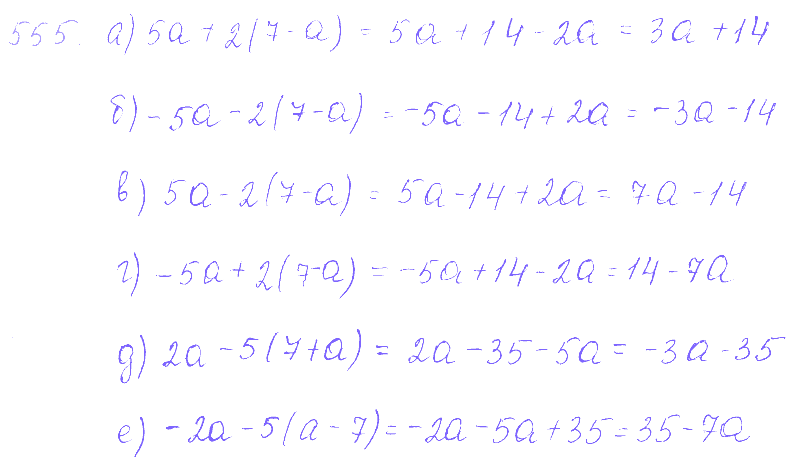 555. а) 5a + 2(7 - a) = 5a + 14 - 2a = 3a + 14
б) - 5a - 2(7 - a) = -5a - 14 + 2a = -3a - 14
в) 5a - 2(7 - a) = 5a - 14 + 2a = 7a - 14
г) - 5a + 2(7 - a) = -5a + 14 - 2a = 14 - 7a
д) 2a - 5(7 + a) = 2a - 35 - 5a = -3a - 35
е) - 2a - 5(a - 7) = -2a - 5a + 35 = 35 - 7a